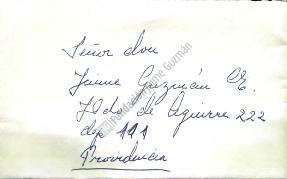 Señor don
Jaime Guzmán E.
Fdo. de Aguirre 222
dep 191
Providencia
Fundación Jaime Guzmán